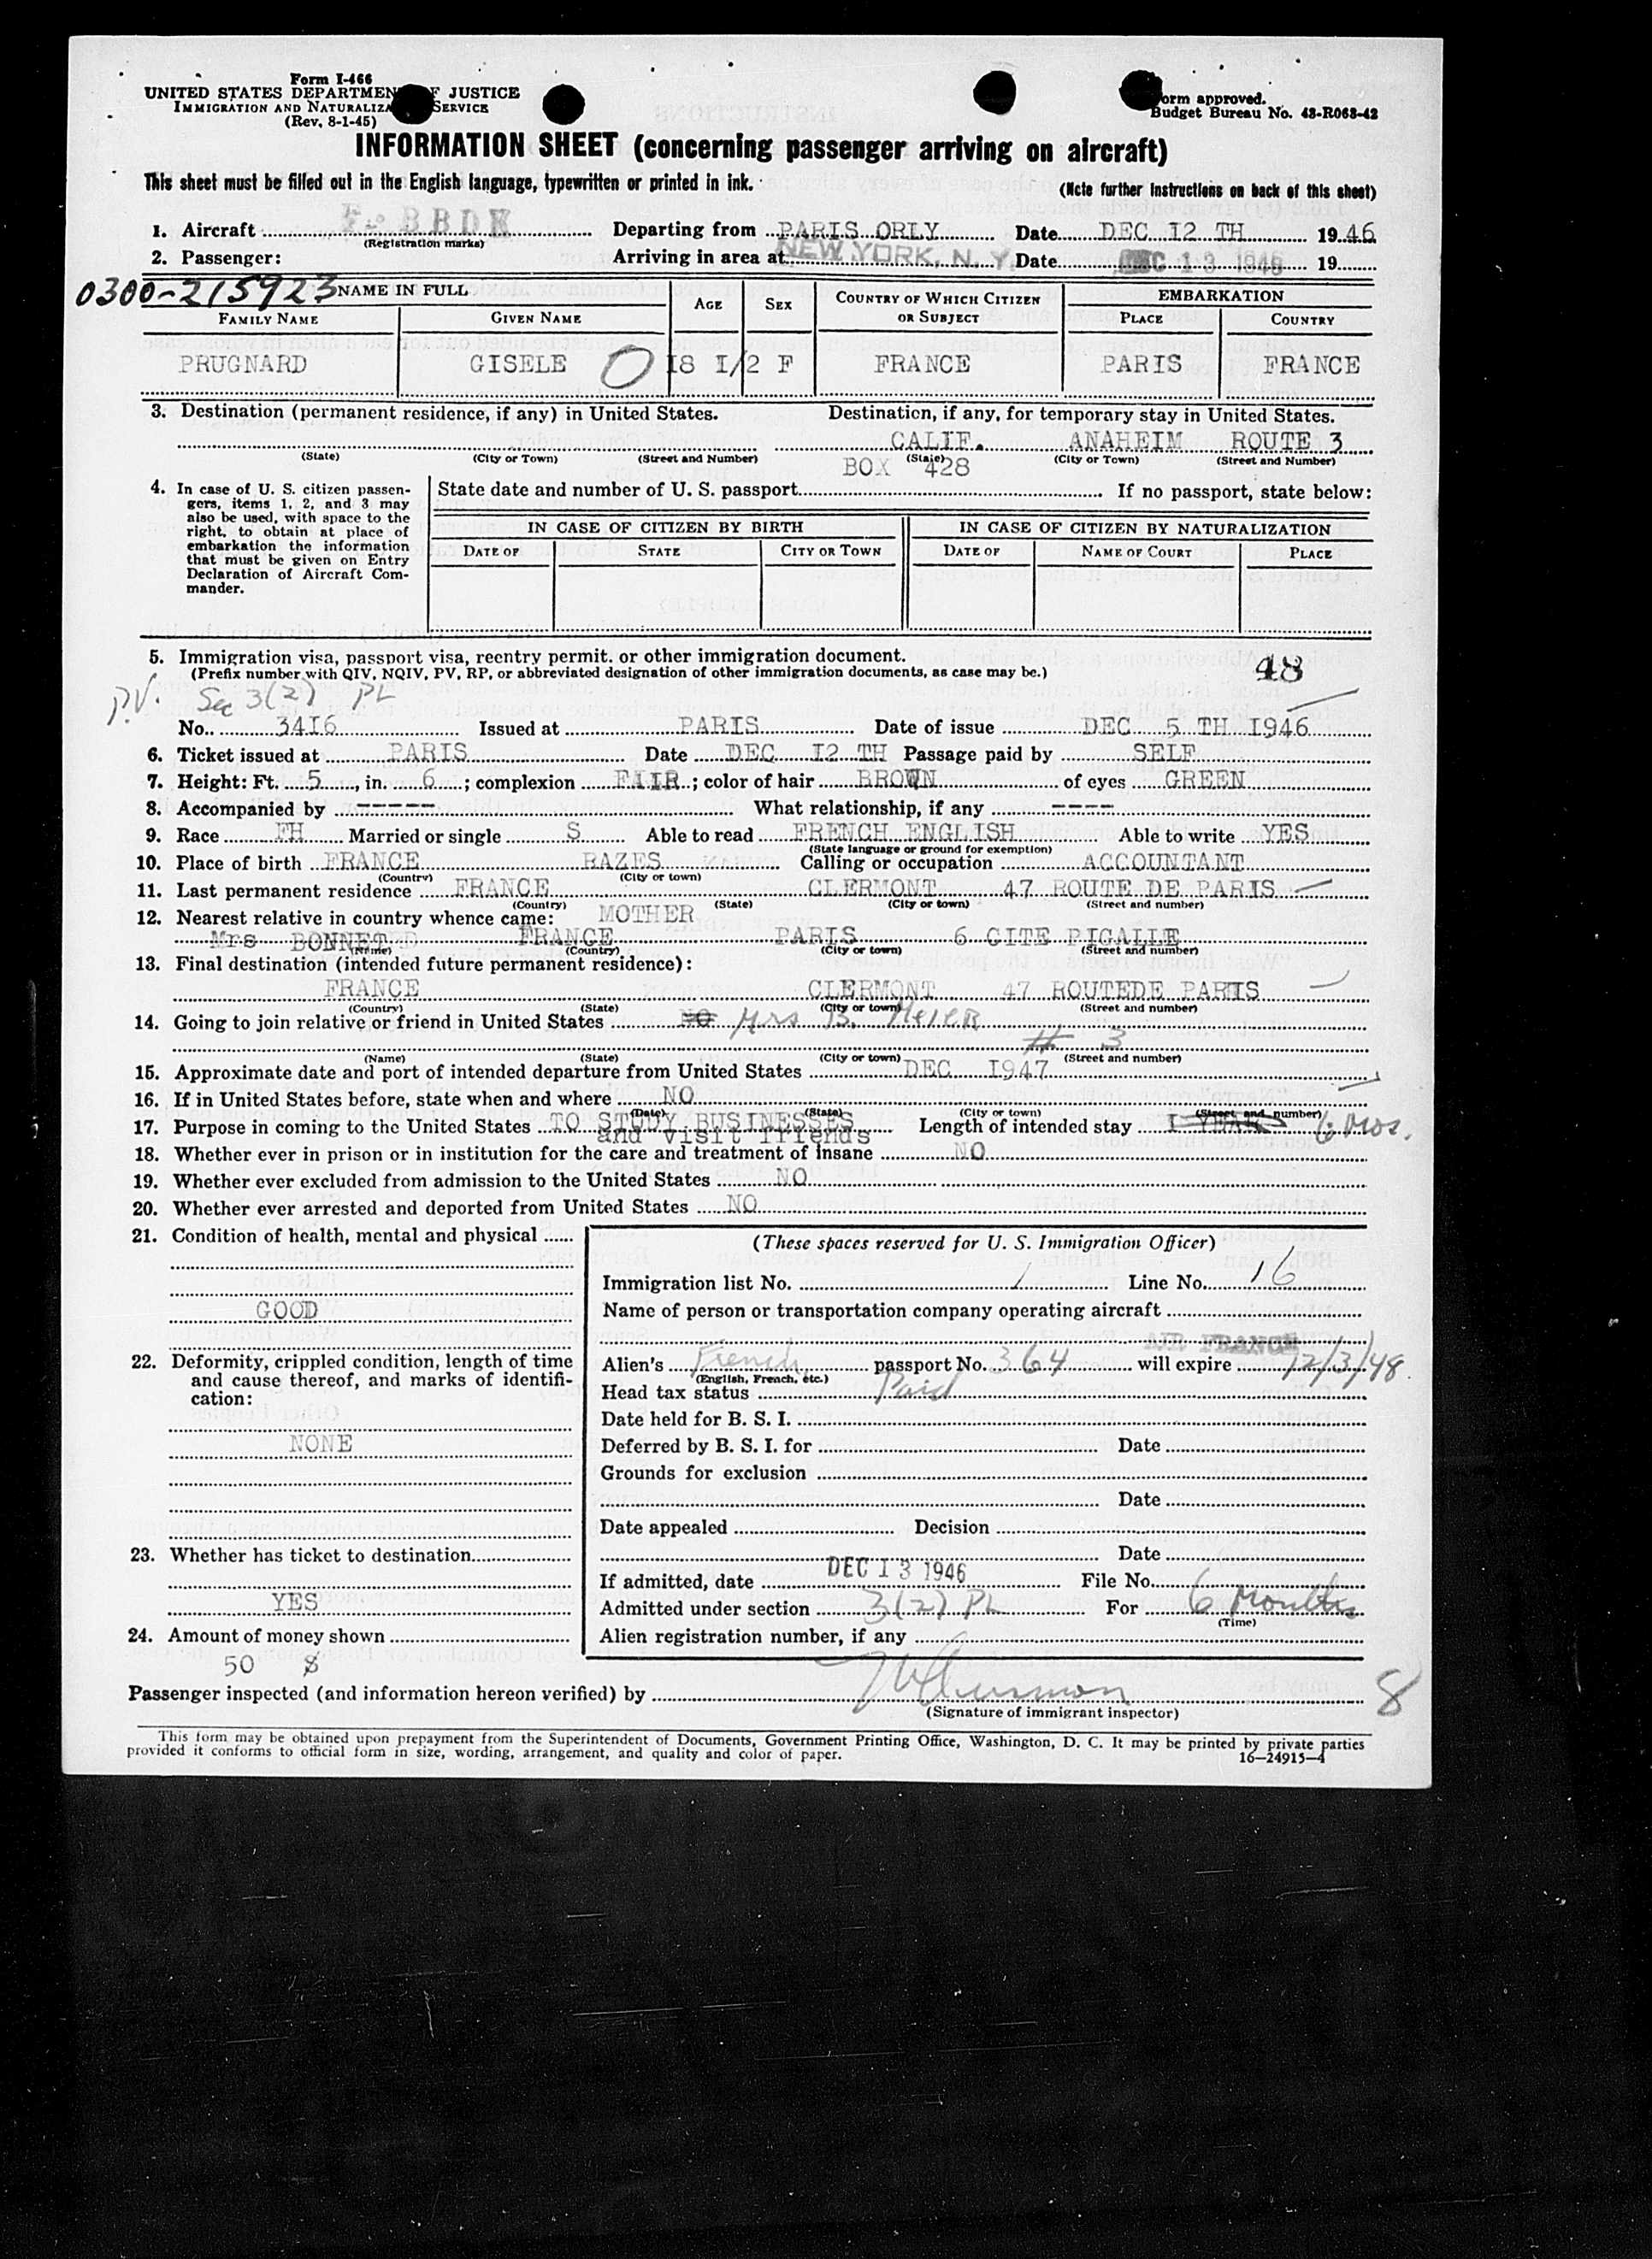 Form I-466
UNITED STATES DEPARTMENT OF JUSTICE
IMMIGRATION AND NATURALIZATION SERVICE
(Rev. 8-1-45)
Form approved.
Budget Bureau No. 43-R063-42
INFORMATION SHEET (concerning passenger arriving on aircraft)
This sheet must be filled out in the English language, typewritten or printed in ink.
(Note further instructions on back of this sheet)
1. Aircraft F-BBDN Departing from PARIS ORLY Date DEC 12 TH 1946
(Registration marks)
2. Passenger: Arriving in area at NEW YORK, N. Y. Date DEC 13 1946 19
0300-215923 NAME IN FULL AGE SEX COUNTRY OF WHICH CITIZEN OR SUBJECT EMBARKATION
FAMILY NAME GIVEN NAME PLACE COUNTRY
PRUGNARD GISELE O 18 1/2 F FRANCE PARIS FRANCE
3. Destination (permanent residence, if any) in United States. Destination, if any, for temporary stay in United States.
CALIF. ANAHEIM ROUTE 3
(State) (City or Town) (Street and Number) (State) (City or Town) (Street and Number)
BOX 428
4. In case of U. S. citizen passengers, items 1, 2, and 3 may also be used, with space to the right, to obtain at place of embarkation the information that must be given on Entry Declaration of Aircraft Commander.
State date and number of U. S. passport If no passport, state below:
IN CASE OF CITIZEN BY BIRTH IN CASE OF CITIZEN BY NATURALIZATION
DATE OF STATE CITY OR TOWN DATE OF NAME OF COURT PLACE
5. Immigration visa, passport visa, reentry permit. or other immigration document.
(Prefix number with QIV, NQIV, PV, RP, or abbreviated designation of other immigration documents, as case may be.) 48
P.V. Sec 3(2) PL
No. 3416 Issued at PARIS Date of issue DEC 5 TH 1946
6. Ticket issued at PARIS Date DEC 12 TH Passage paid by SELF
7. Height: Ft. 5, in. 6; complexion FAIR; color of hair BROWN of eyes GREEN
8. Accompanied by ----- What relationship, if any ----
9. Race FH Married or single S Able to read FRENCH ENGLISH Able to write YES
(State language or ground for exemption)
10. Place of birth FRANCE RAZES Calling or occupation ACCOUNTANT
(Country) (City or town)
11. Last permanent residence FRANCE CLERMONT 47 ROUTE DE PARIS
(Country) (State) (City or town) (Street and number)
12. Nearest relative in country whence came: MOTHER
Mrs BONNET FRANCE PARIS 6 CITE PIGALLE
(Name) (Country) (City or town) (Street and number)
13. Final destination (intended future permanent residence):
FRANCE CLERMONT 47 ROUTEDE PARIS
(Country) (State) (City or town) (Street and number)
14. Going to join relative or friend in United States NO Mrs B. Meier
# 3
(Name) (State) (City or town) (Street and number)
15. Approximate date and port of intended departure from United States DEC 1947
16. If in United States before, state when and where NO
(Date) (State) (City or town) (Street and number)
17. Purpose in coming to the United States TO STUDY BUSINESSES Length of intended stay 1 YEAR 6 Mos.
and visit friends
18. Whether ever in prison or in institution for the care and treatment of insane NO
19. Whether ever excluded from admission to the United States NO
20. Whether ever arrested and deported from United States NO
21. Condition of health, mental and physical
GOOD
22. Deformity, crippled condition, length of time and cause thereof, and marks of identification:
NONE
23. Whether has ticket to destination
YES
24. Amount of money shown
50 $
(These spaces reserved for U. S. Immigration Officer)
Immigration list No. 1 Line No. 16
Name of person or transportation company operating aircraft
AIR FRANCE
Alien's French passport No. 364 will expire 12/3/48.
(English, French, etc.)
Head tax status Paid
Date held for B. S. I.
Deferred by B. S. I. for Date
Grounds for exclusion
Date
Date appealed Decision
Date
If admitted, date DEC 13 1946 File No.
Admitted under section 3(2) PL For 6 Months
(Time)
Alien registration number, if any
Passenger inspected (and information hereon verified) by
(Signature of immigrant inspector)
8
This form may be obtained upon prepayment from the Superintendent of Documents, Government Printing Office, Washington, D. C. It may be printed by private parties
provided it conforms to official form in size, wording, arrangement, and quality and color of paper.
16—24915-4